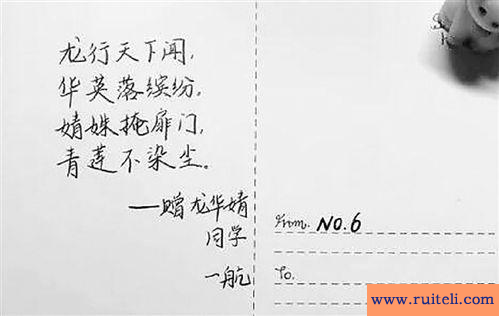 龙行天下闻，
华英落缤纷。
婧姝掩扉门，
青莲不染尘。
——赠龙华婧
同学
一航
From. NO.6
To.
www.ruiteli.com